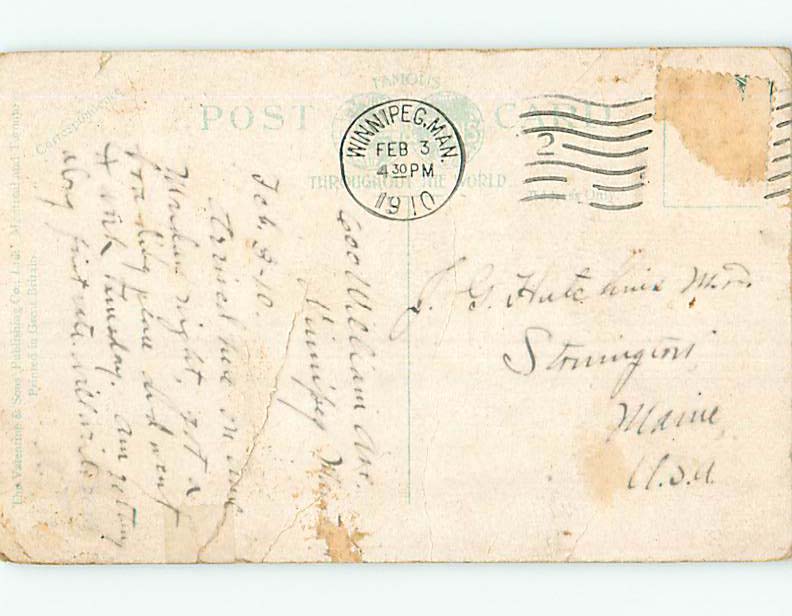 FAMOUS
POST CARD
THROUGHOUT THE WORLD
Correspondence
Address Only
WINNIPEG, MAN.
FEB 3
4 30 PM
1910
2
600 William Ave.
Winnipeg Man
Feb. 3-10.
Arrived here on time
Monday night, got a
boarding place and went
to work Tuesday. Am getting
along first rate. will write
J. G. Hutchins M.D.
Stonington
Maine
U.S.A.
The Valentine & Sons' Publishing Co., Ltd., Montreal and Toronto
Printed in Great Britain.